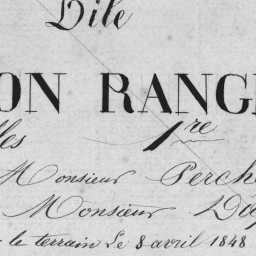 Dile
ON RANG
lles 1re
Monsieur Perch
Monsieur Du
le terrain Le 8 avril 1848